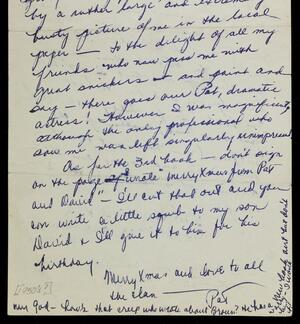 by a rather large and extremely
busty picture of me in the local
paper — to the delight of all my
friends who now pass me with
great snickers and point and
say — there goes our Pat, dramatic
actress! However I was magnificent,
although the only professional who
saw me was left singularly unimpressed
As for the 3rd book — don't sign
on the page I wrote "Merry Xmas from Pat
and David" — I'll cut that out and you
can write a little squib to my son
David & I'll give it to him for his
birthday.
Merry Xmas and love to all
the clan
Pat
my god — how's that creep who wrote about Brown? He has a